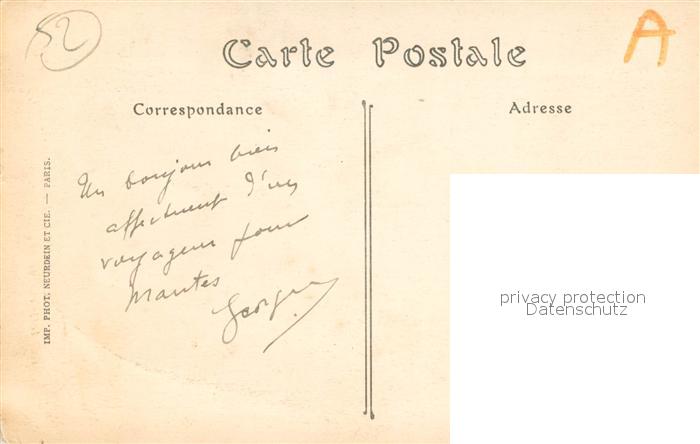 52
A
Carte Postale
Correspondance
Adresse
Un bonjour bien
affectueux d'un
voyageur pour
Mantes
Georges
IMP. PHOT. NEURDEIN ET CIE. — PARIS.
privacy protection
Datenschutz